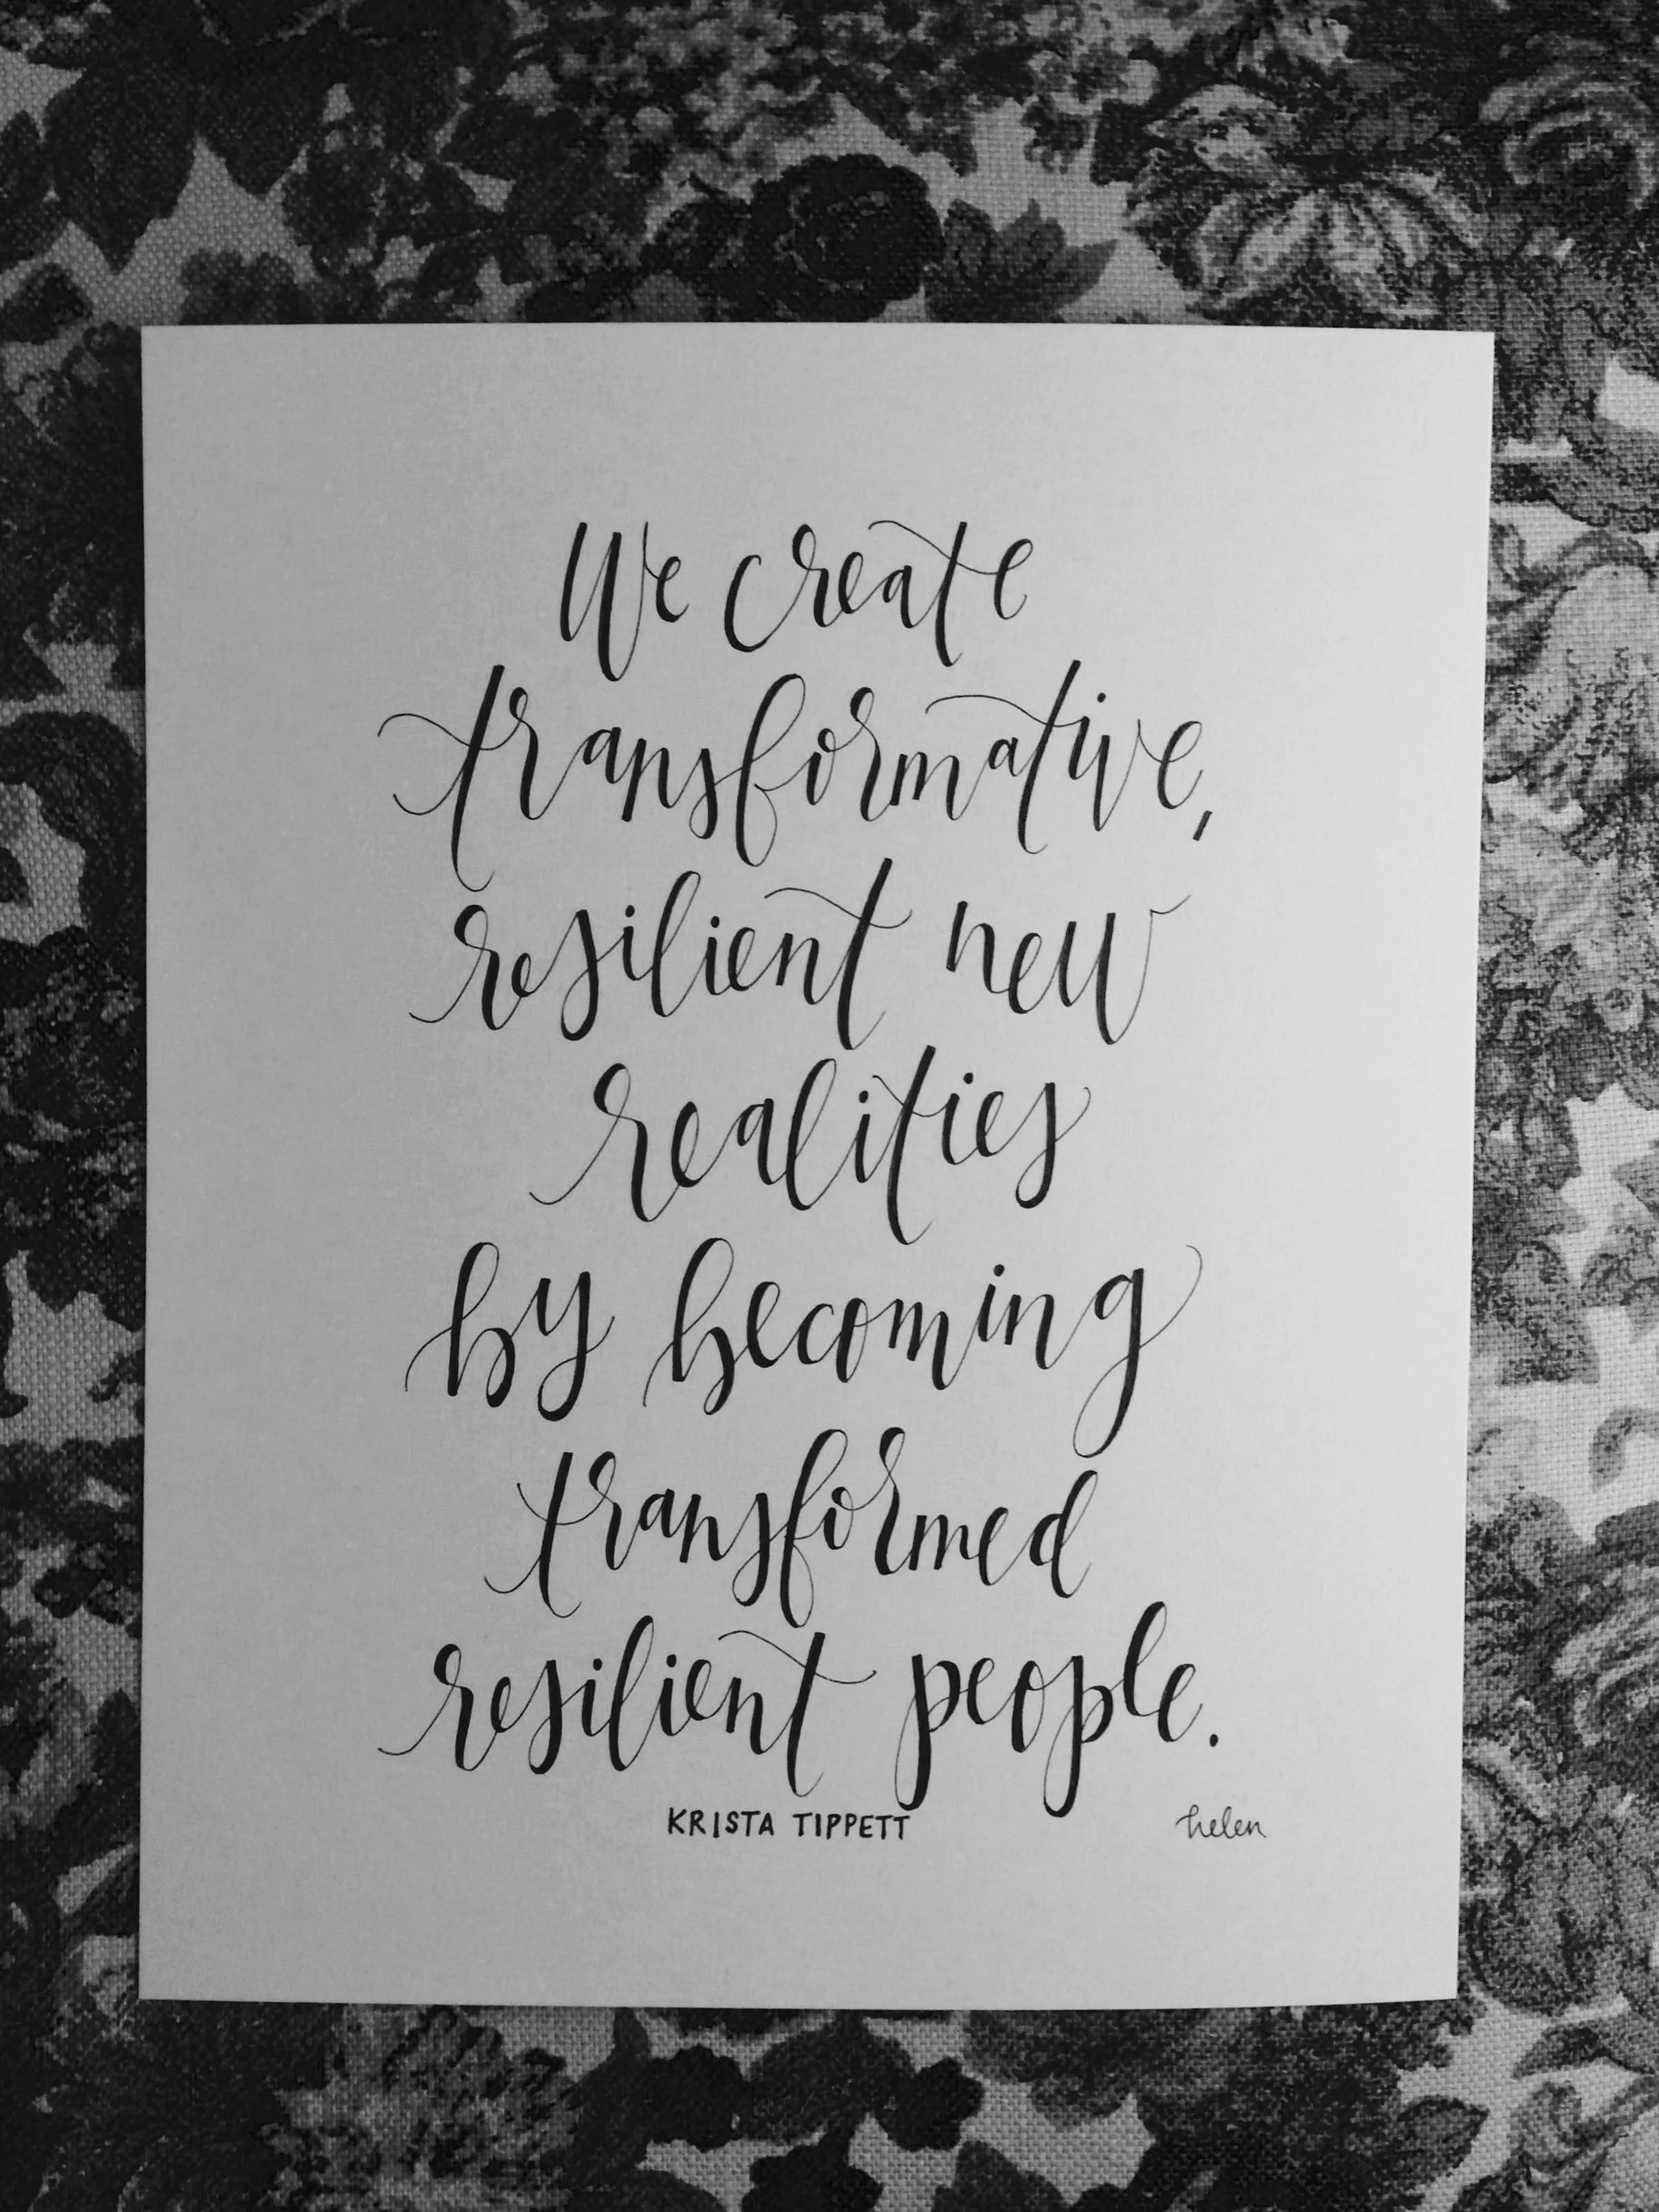 We create
transformative,
resilient new
realities
by becoming
transformed
resilient people.
KRISTA TIPPETT
helen